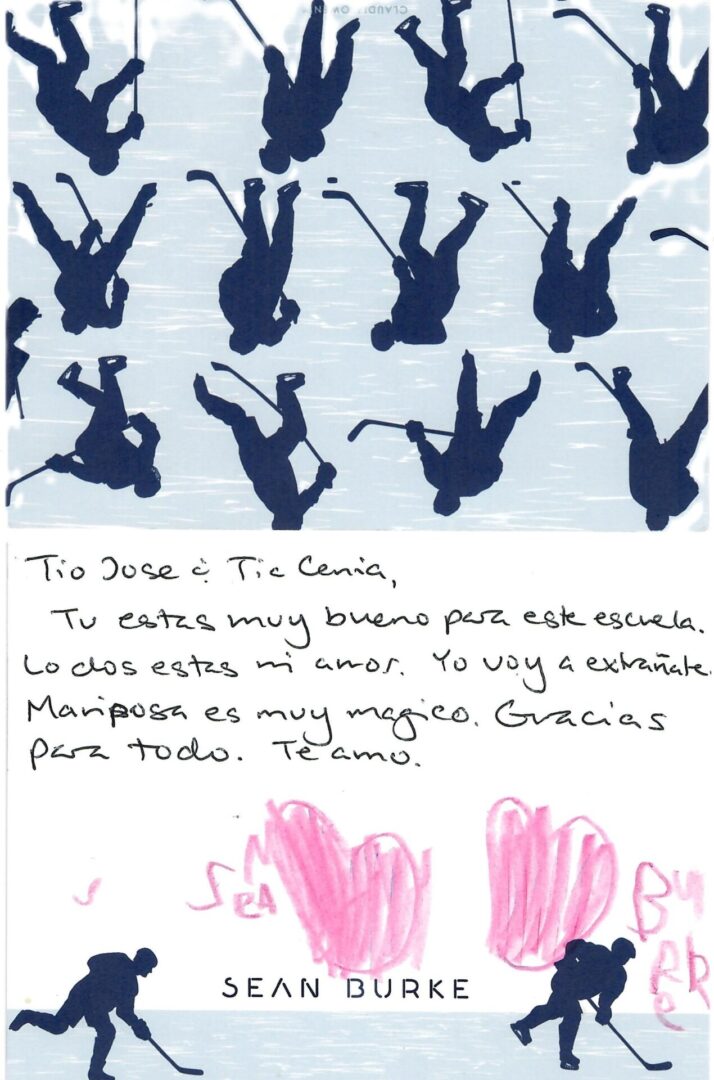 CLAUDI
Tio Jose & Tia Cenia,
Tu estas muy bueno para este escuela.
Lo dos estas mi amor. Yo voy a extrañate.
Mariposa es muy magico. Gracias
para todo. Te amo.
s
SeaN
BuRke
SEAN BURKE